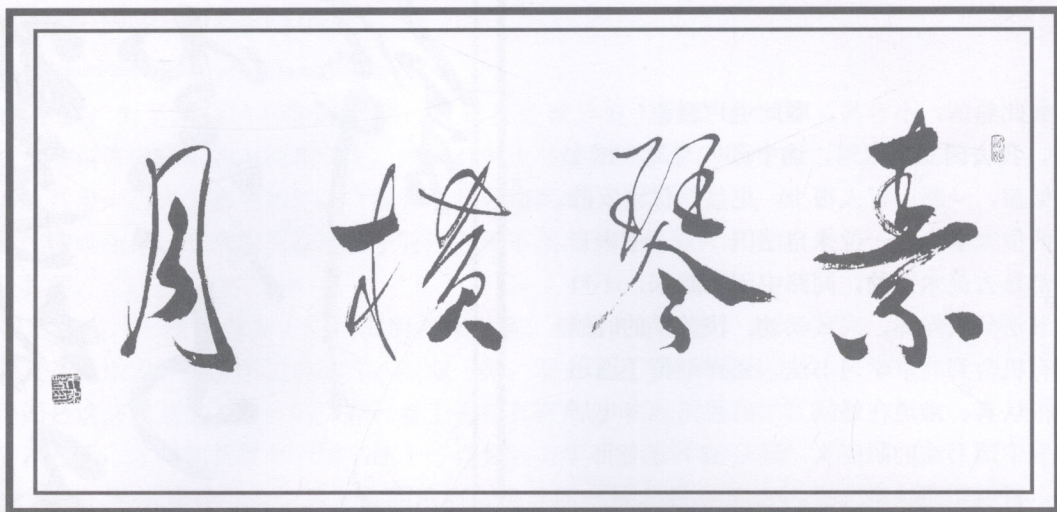 素琴横月